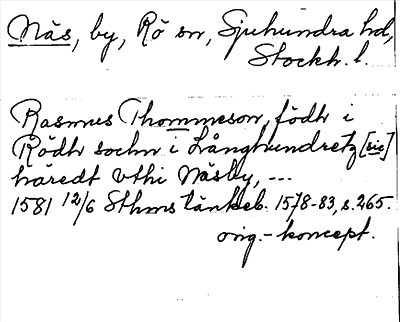 Näs, by, Rö sn, Sjuhundra hd,
Stockh. l.
Rasmus Thommeson, födh i
Rödh sochn i Långhundretz [sic]
häredt vthi Näsby, ---
1581 12/6 Sthms tänkeb. 1578-83, s. 265.
orig.-koncept.